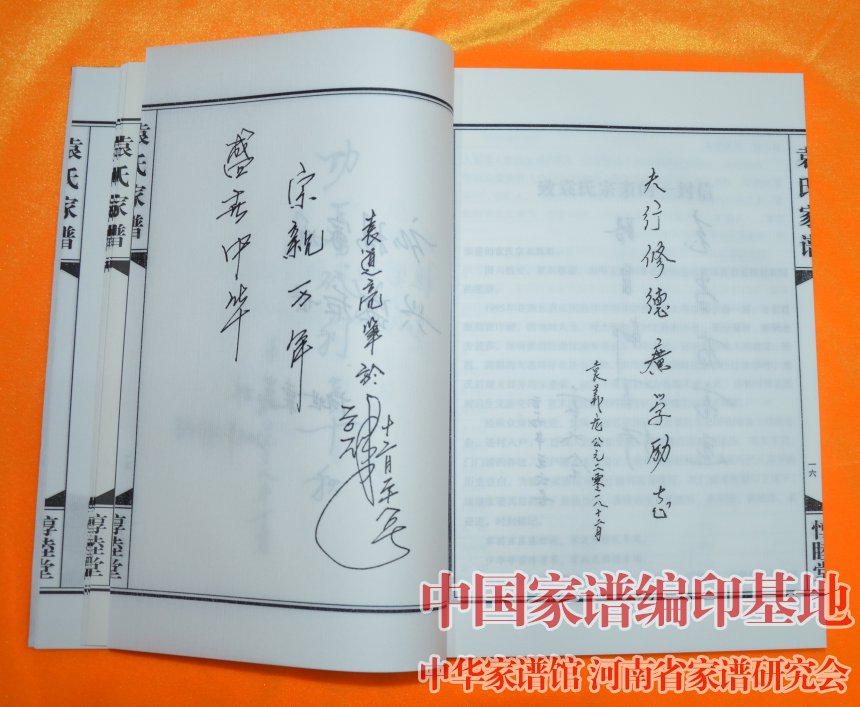 袁氏家谱
惇睦堂
袁氏家谱
惇睦堂
袁氏家谱
惇睦堂
宗亲万年
盛在中华
袁道亮笔於
大行修德 广学励志
袁义彦公元二零一八十二月
袁氏家谱
一六
惇睦堂
中国家谱编印基地
中华家谱馆 河南省家谱研究会